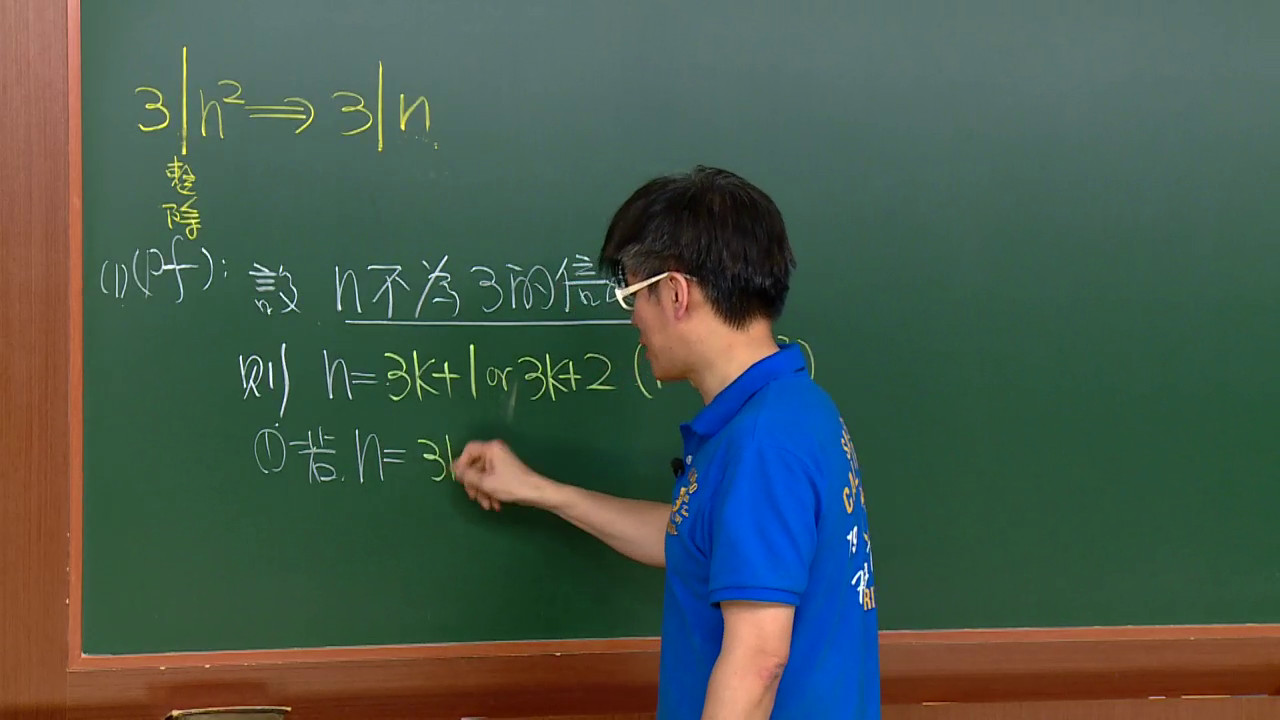 3|n²⟹3|n
整
除
(1)(pf): 設 n不為3的倍
則 n=3k+1 or 3k+2 (
①若 n= 3k